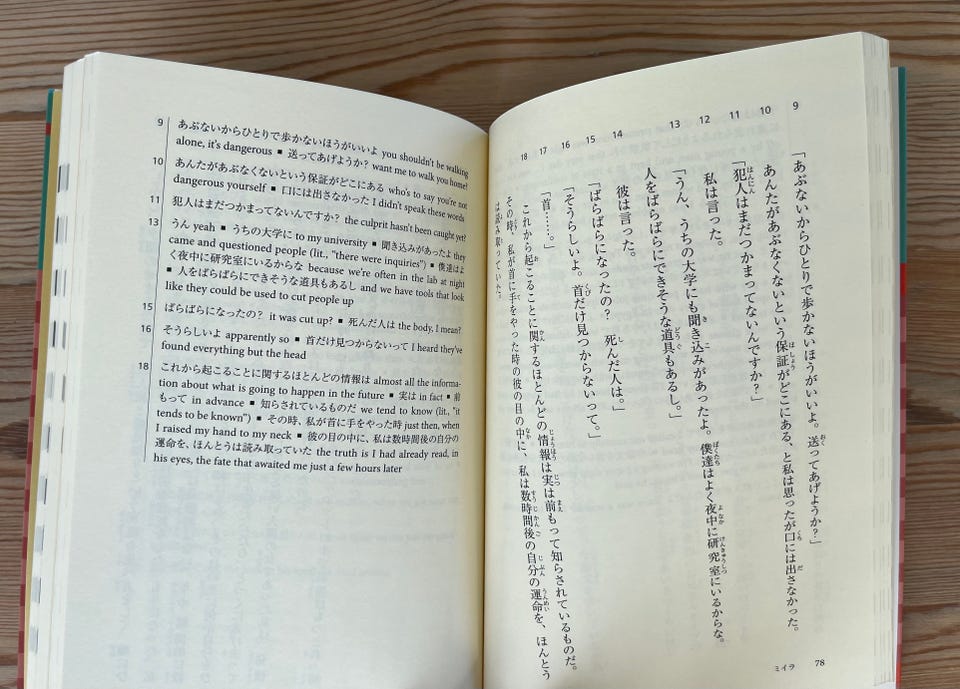 9 あぶないからひとりで歩かないほうがいいよ you shouldn't be walking
alone, it's dangerous ■ 送ってあげようか? want me to walk you home?
10 あんたがあぶなくないという保証がどこにある who's to say you're not
dangerous yourself ■ 口には出さなかった I didn't speak these words
11 犯人はまだつかまってないんですか? the culprit hasn't been caught yet?
13 うん yeah ■ うちの大学に to my university ■ 聞き込みがあったよ they
came and questioned people (lit., "there were inquiries") ■ 僕達はよ
く夜中に研究室にいるからな because we're often in the lab at night
■ 人をばらばらにできそうな道具もあるし and we have tools that look
like they could be used to cut people up
15 ばらばらになったの? it was cut up? ■ 死んだ人は the body, I mean?
16 そうらしいよ apparently so ■ 首だけ見つからないって I heard they've
found everything but the head
18 これから起こることに関するほとんどの情報は almost all the informa-
tion about what is going to happen in the future ■ 実は in fact ■ 前
もって in advance ■ 知らされているものだ we tend to know (lit., "it
tends to be known") ■ その時、私が首に手をやった時 just then, when
I raised my hand to my neck ■ 彼の目の中に、私は数時間後の自分の
運命を、ほんとうは読み取っていた the truth is I had already read, in
his eyes, the fate that awaited me just a few hours later
9 「あぶないからひとりで歩かないほうがいいよ。送ってあげようか?」
10 あんたがあぶなくないという保証がどこにある、と私は思ったが口には出さなかった。
11 「犯人はまだつかまってないんですか?」
12 私は言った。
13 「うん、うちの大学にも聞き込みがあったよ。僕達はよく夜中に研究室にいるからな。
人をばらばらにできそうな道具もあるし。」
14 彼は言った。
15 「ばらばらになったの? 死んだ人は。」
16 「そうらしいよ。首だけ見つからないって。」
17 「首……。」
18 これから起こることに関するほとんどの情報は実は前もって知らされているものだ。
その時、私が首に手をやった時の彼の目の中に、私は数時間後の自分の運命を、ほんとう
は読み取っていた。
ミイラ 78